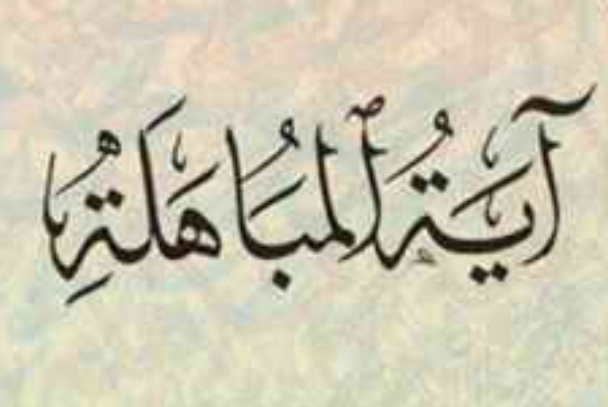 آيَةُ ٱلْمُبَاهَلَةِ